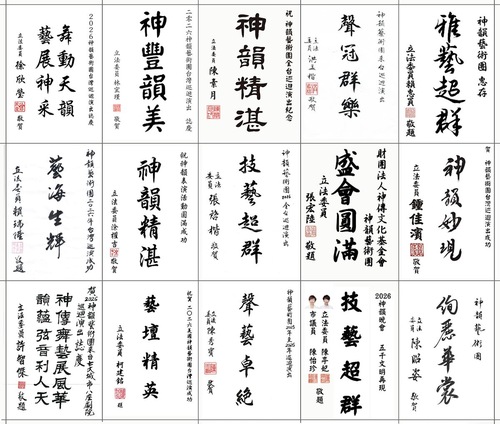 2026神韻藝術團台灣巡迴演出誌慶
舞動天韻
藝展神采
立法委員 徐欣瑩 敬賀
二零二六神韻藝術團台灣巡迴演出 誌慶
神豐韻美
立法委員
敬賀
祝 神韻藝術團全台巡迴演出紀念
神韻精湛
立法委員 陳素月
神韻藝術團來台巡迴演出
聲冠群樂
立法委員 洪孟楷 敬賀
神韻藝術團 惠存
雅藝超群
立法委員賴惠員 敬題
神韻藝術團二〇二六年台灣巡演成功
藝海生輝
立法委員 賴瑞隆 敬題
祝神韻表演活動圓滿成功
神韻精湛
立法委員徐巧芯 敬賀
神韻藝術團2026全台巡迴演出
技藝超群
立法委員 張嘉楷 敬賀
財團法人神傳文化基金會
神韻藝術團
盛會圓滿
立法委員 張宏陸 敬題
賀
神韻藝術團2026年台灣巡迴演出
神韻妙現
立法委員 鍾佳濱 敬賀
賀2026神韻藝術團來台
巡迴演出誌慶
神傳舞藝展風華
韻蘊弦音利人天
立法委員 許智傑 敬題
神韻藝術團2026年台灣巡迴演出
藝壇精英
立法委員 柯建銘 題
祝賀二〇二六美國神韻藝術團台灣巡演成功
聲藝卓絕
立法委員 陳秀寳 賀
2026神韻晚會 五千文明再現
技藝超群
立法委員 陳亭妃
市議員 陳怡珍
敬題
神韻藝術團
絢麗華裳
立法委員 陳昭姿 敬賀